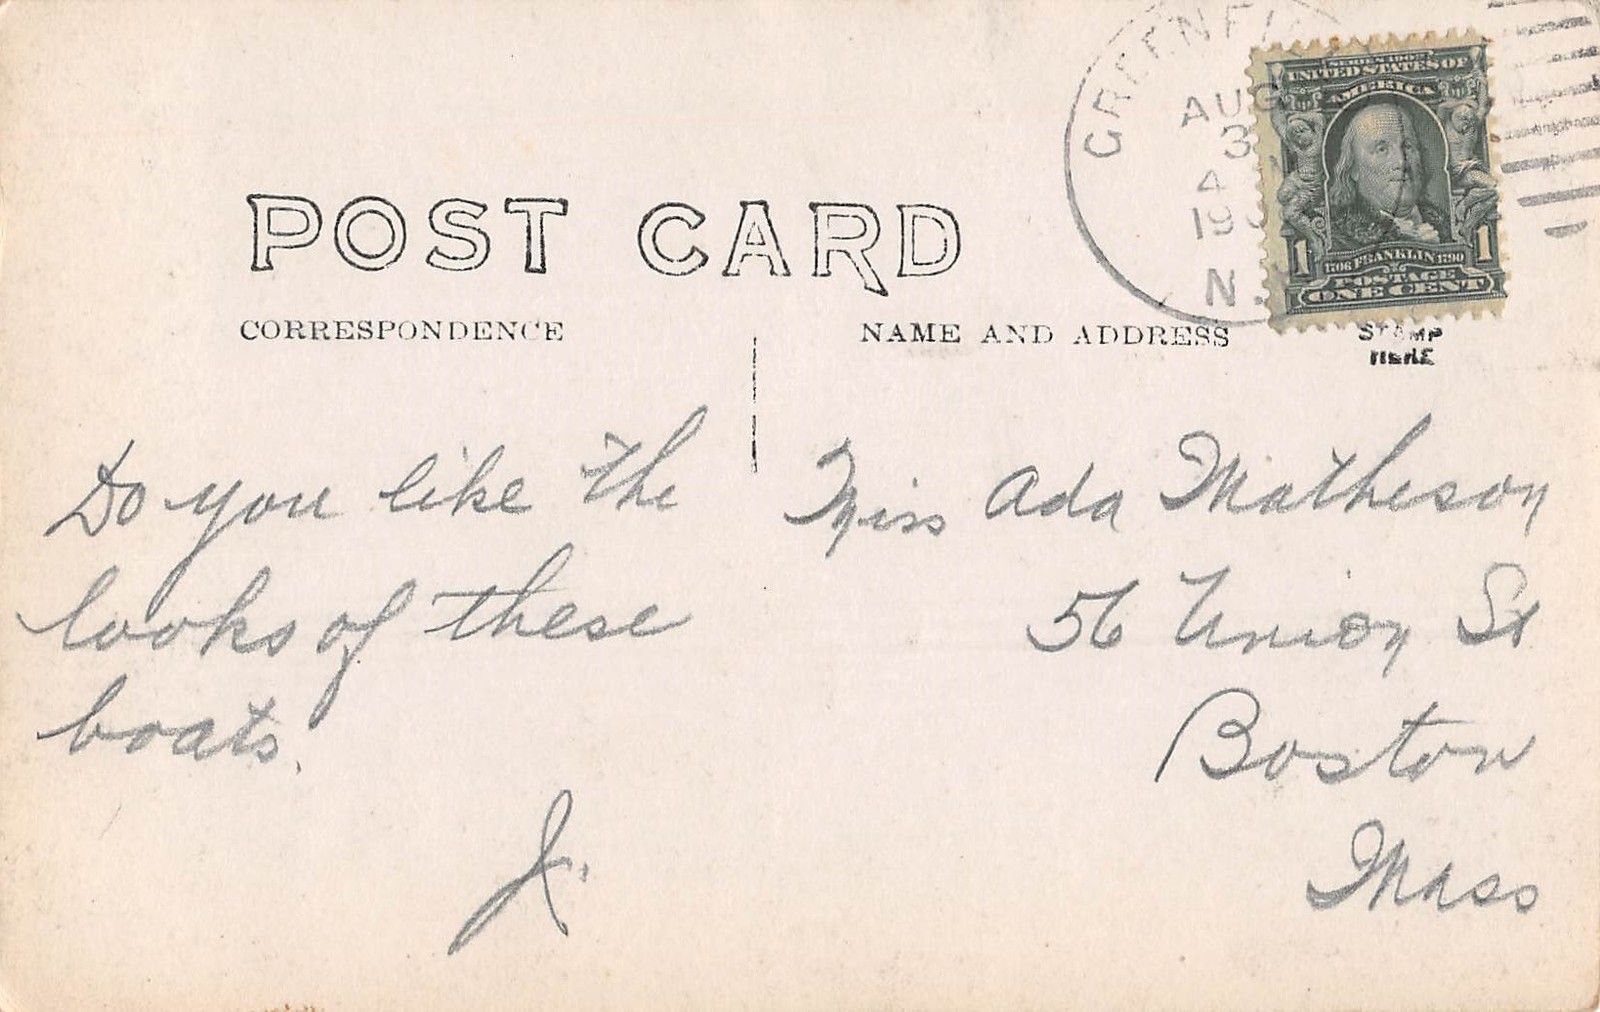 GREENFI
AUG
3
4
19
N.
SERIES 1902
UNITED STATES OF
AMERICA
1 1
1706 FRANKLIN 1790
POSTAGE
ONE CENT
POST CARD
CORRESPONDENCE
NAME AND ADDRESS
STAMP
HERE
Do you like the
looks of these
boats.
Miss Ada Matheson
56 Union St
Boston
Mass